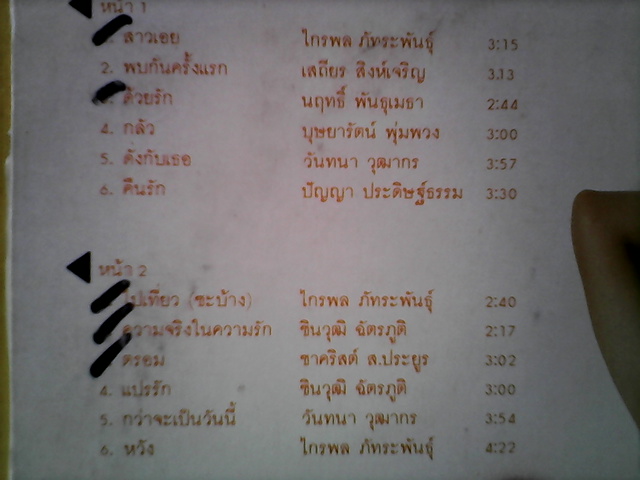 หน้า 1
1. สาวเอย ไกรพล ภัทระพันธุ์ 3:15
2. พบกันครั้งแรก เสถียร สิงห์เจริญ 3.13
ด้วยรัก นฤทธิ์ พันธุเมธา 2:44
4. กลัว บุษยารัตน์ พุ่มพวง 3:00
5. ดังกับเธอ วันทนา วุฒากร 3:57
6. คืนรัก ปัญญา ประดิษฐ์ธรรม 3:30
หน้า 2
ไปเที่ยว (ซะบ้าง) ไกรพล ภัทระพันธุ์ 2:40
ความจริงในความรัก ชินวุฒิ ฉัตรภูติ 2:17
ตรอม ชาคริสต์ ส.ประยูร 3:02
4. แปรรัก ชินวุฒิ ฉัตรภูติ 3:00
5. กว่าจะเป็นวันนี้ วันทนา วุฒากร 3:54
6. หวัง ไกรพล ภัทระพันธุ์ 4:22